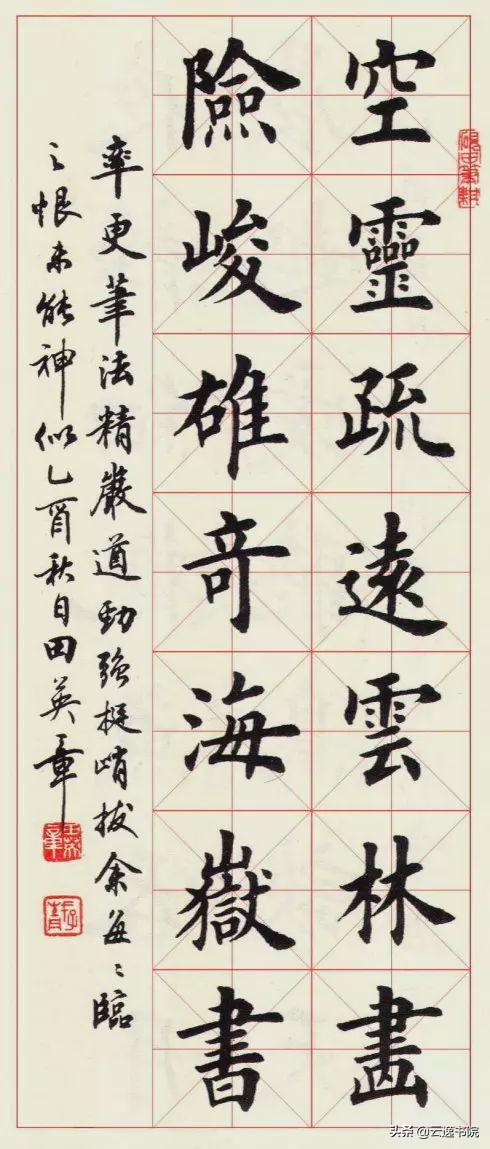 空靈疏遠雲林畫
險峻雄奇海嶽書
率更筆法精嚴遒勁強挺峭拔余每々臨
之恨未能神似乙酉秋日田英章
头条@云逸书院